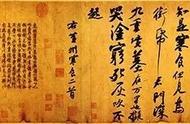 知是寒食但見烏
銜帋君門深
九重墳墓在万里也擬
哭塗窮死灰吹不
起
右黃州寒食二首